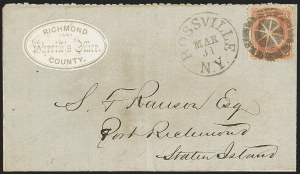 RICHMOND
Sheriff's Office.
COUNTY.
ROSSVILLE N.Y.
MAR
31
S. F. Rawson Esq
Port Richmond
Staten Island